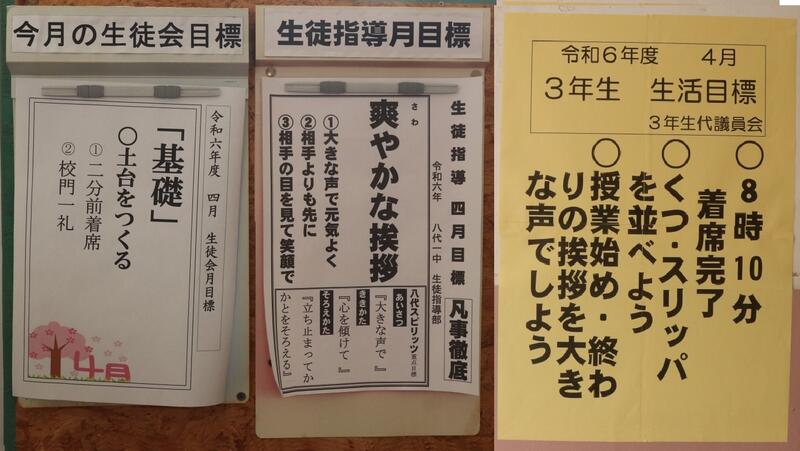 今月の生徒会目標
令和六年度　四月　生徒会月目標
「基礎」
〇土台をつくる
①二分前着席
②校門一礼
4月
生徒指導月目標
生徒指導　四月目標
令和六年　八代一中　生徒指導部
さわ
爽やかな挨拶
①大きな声で元気よく
②相手よりも先に
③相手の目を見て笑顔で
凡事徹底
八代スピリッツ重点目標
あいさつ
『大きな声で』
ききかた
『心を傾けて』
そろえかた
『立ち止まってか
かとをそろえる』
令和６年度　４月
３年生　生活目標
３年生代議員会
〇８時10分
着席完了
〇くつ・スリッパ
を並べよう
〇授業始め・終わ
りの挨拶を大き
な声でしよう